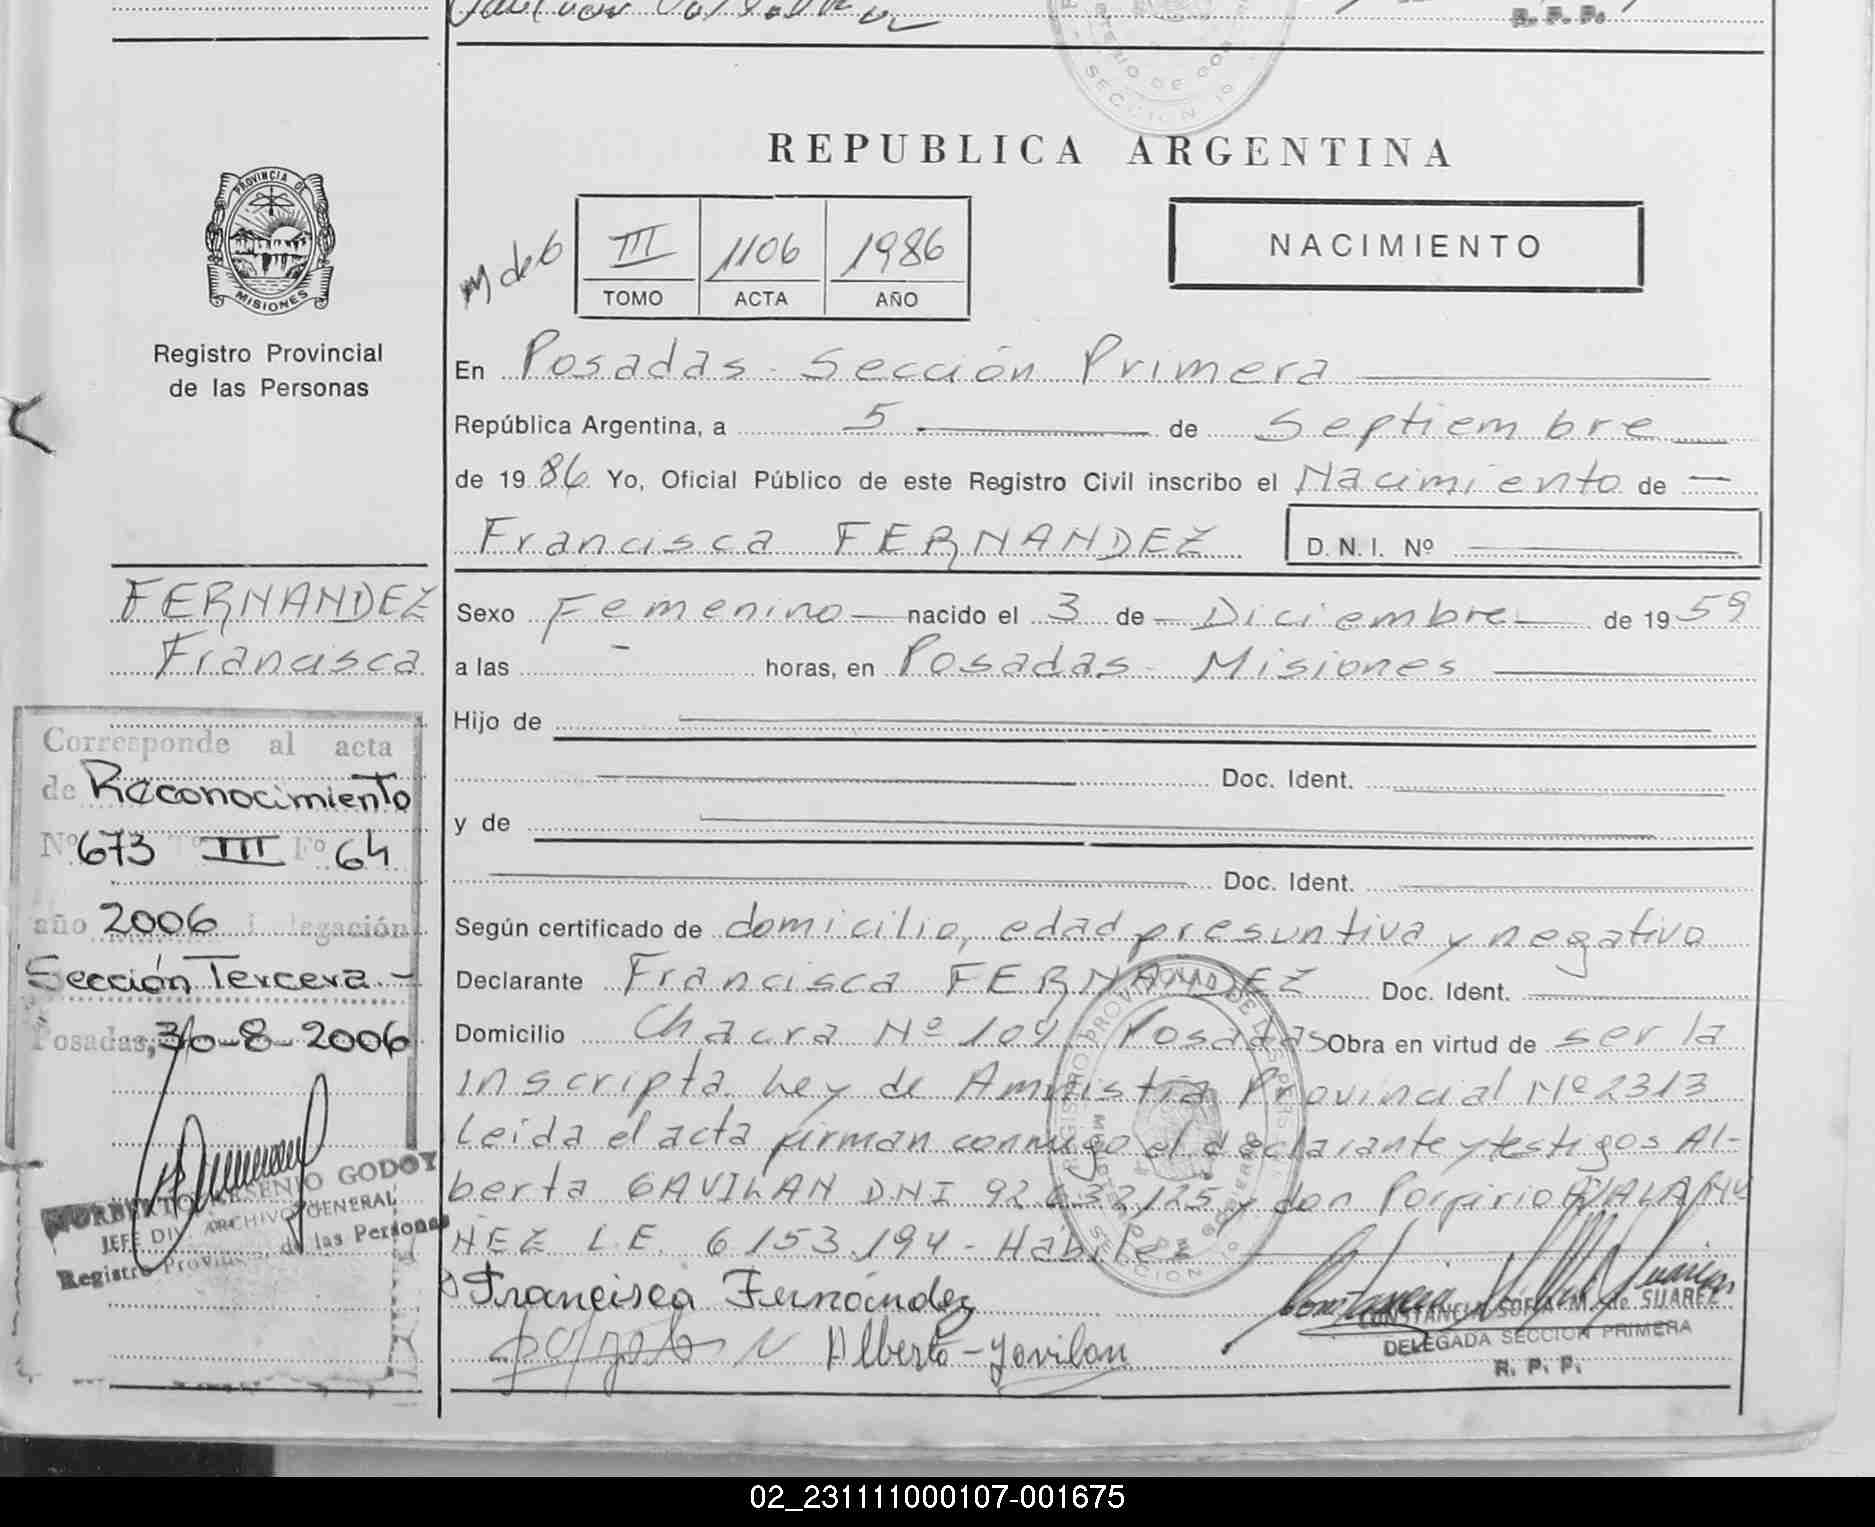 R. P. P.
PROVINCIA DE
MISIONES
Registro Provincial
de las Personas
REPUBLICA ARGENTINA
NACIMIENTO
III 1106 1986
TOMO ACTA AÑO
En Posadas - Sección Primera
República Argentina, a 5 de Septiembre
de 1986 Yo, Oficial Público de este Registro Civil inscribo el Nacimiento de
Francisca FERNANDEZ D.N.I. Nº
FERNANDEZ
Francisca
Sexo Femenino nacido el 3 de Diciembre de 1959
a las - horas, en Posadas - Misiones
Hijo de
Doc. Ident.
y de
Doc. Ident.
Según certificado de domicilio, edad presuntiva y negativo
Declarante Francisca FERNANDEZ Doc. Ident.
Domicilio Chacra Nº 104 Posadas Obra en virtud de ser la
inscripta. Ley de Amnistia Provincial Nº 2313
Leida el acta firman conmigo el declarante y testigos Al-
berta GAVILAN DNI 92.632.125 y don Porfirio
NEZ L.E. 6153.194 - Habiles
Francisca Fernández
Alberto - Gavilan
CONSTANCIA SOFIA M. de SUAREZ
DELEGADA SECCION PRIMERA
R. P. P.
Corresponde al acta
de Reconocimiento
Nº 673 Tº III Fº 64
año 2006 Delegación
Sección Tercera.-
Posadas, 30-8-2006
NORBERTO ARSENIO GODOY
JEFE DIV. ARCHIVO GENERAL
Registro Provincial de las Personas
02_231111000107-001675